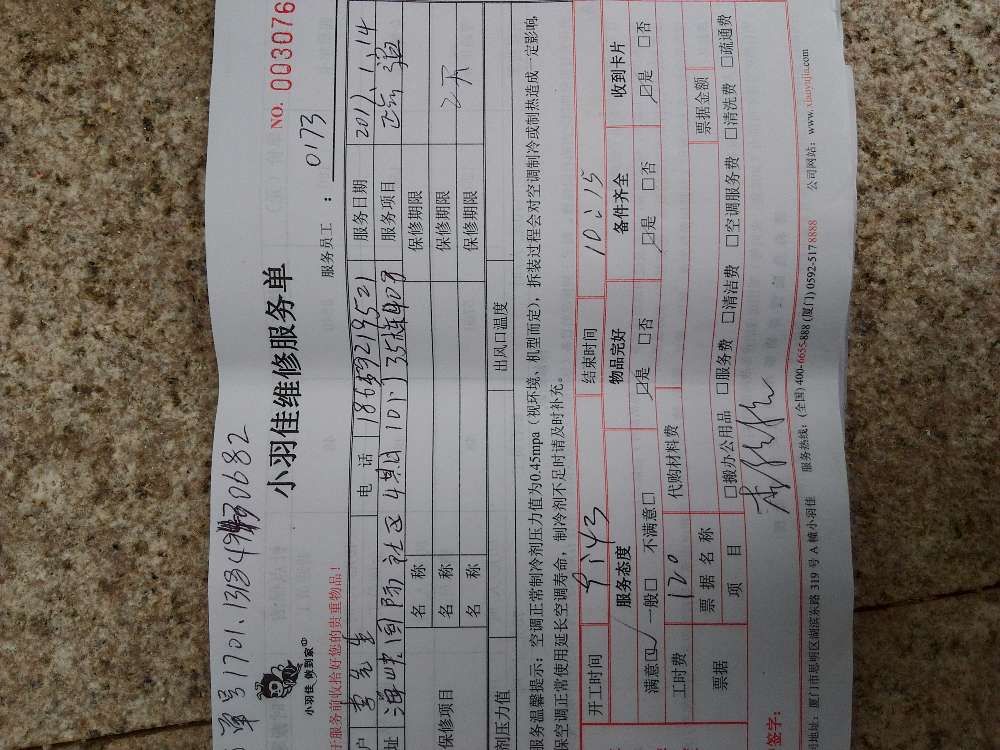 单号1701.131349730682
小羽佳 做到家
小羽佳维修服务单
NO. 003076
服务员工 : 0173
服务前收拾好您的贵重物品!
户 李先生 电 话 服务日期 2017.1.14
址 海峡国际社区4期101门35栋 服务项目
保修项目 名 称 保修期限
名 称 保修期限
名 称 保修期限
剂压力值 出风口温度
服务温馨提示：空调正常制冷剂压力值为0.45mpa（视环境、机型而定），拆装过程会对空调制冷或制热造成一定影响,
保空调正常使用延长空调寿命，制冷剂不足时请及时补充。
开工时间 9:43 结束时间 10:15
服务态度 物品完好 备件齐全 收到卡片
满意☑ 一般□ 不满意□ ☑是 □否 ☑是 □否 ☑是 □否
工时费 120 代购材料费
票据 票 据 名 称 票据金额
项 目 □搬办公用品 □服务费 □清洁费 □空调服务费 □清洗费 □疏通费
签字：
地址：厦门市思明区湖滨东路 319 号 A 幢小羽佳 服务热线：(全国) 400-6655-888 (厦门) 0592-5178888 公司网站：www.xiaoyujia.com